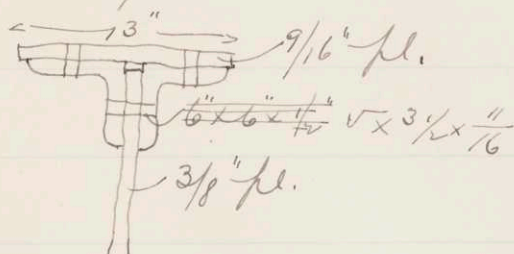 13"
9/16" pl.
6" x 6" x 1/2" 5 x 3 1/2 x 11/16
3/8" pl.